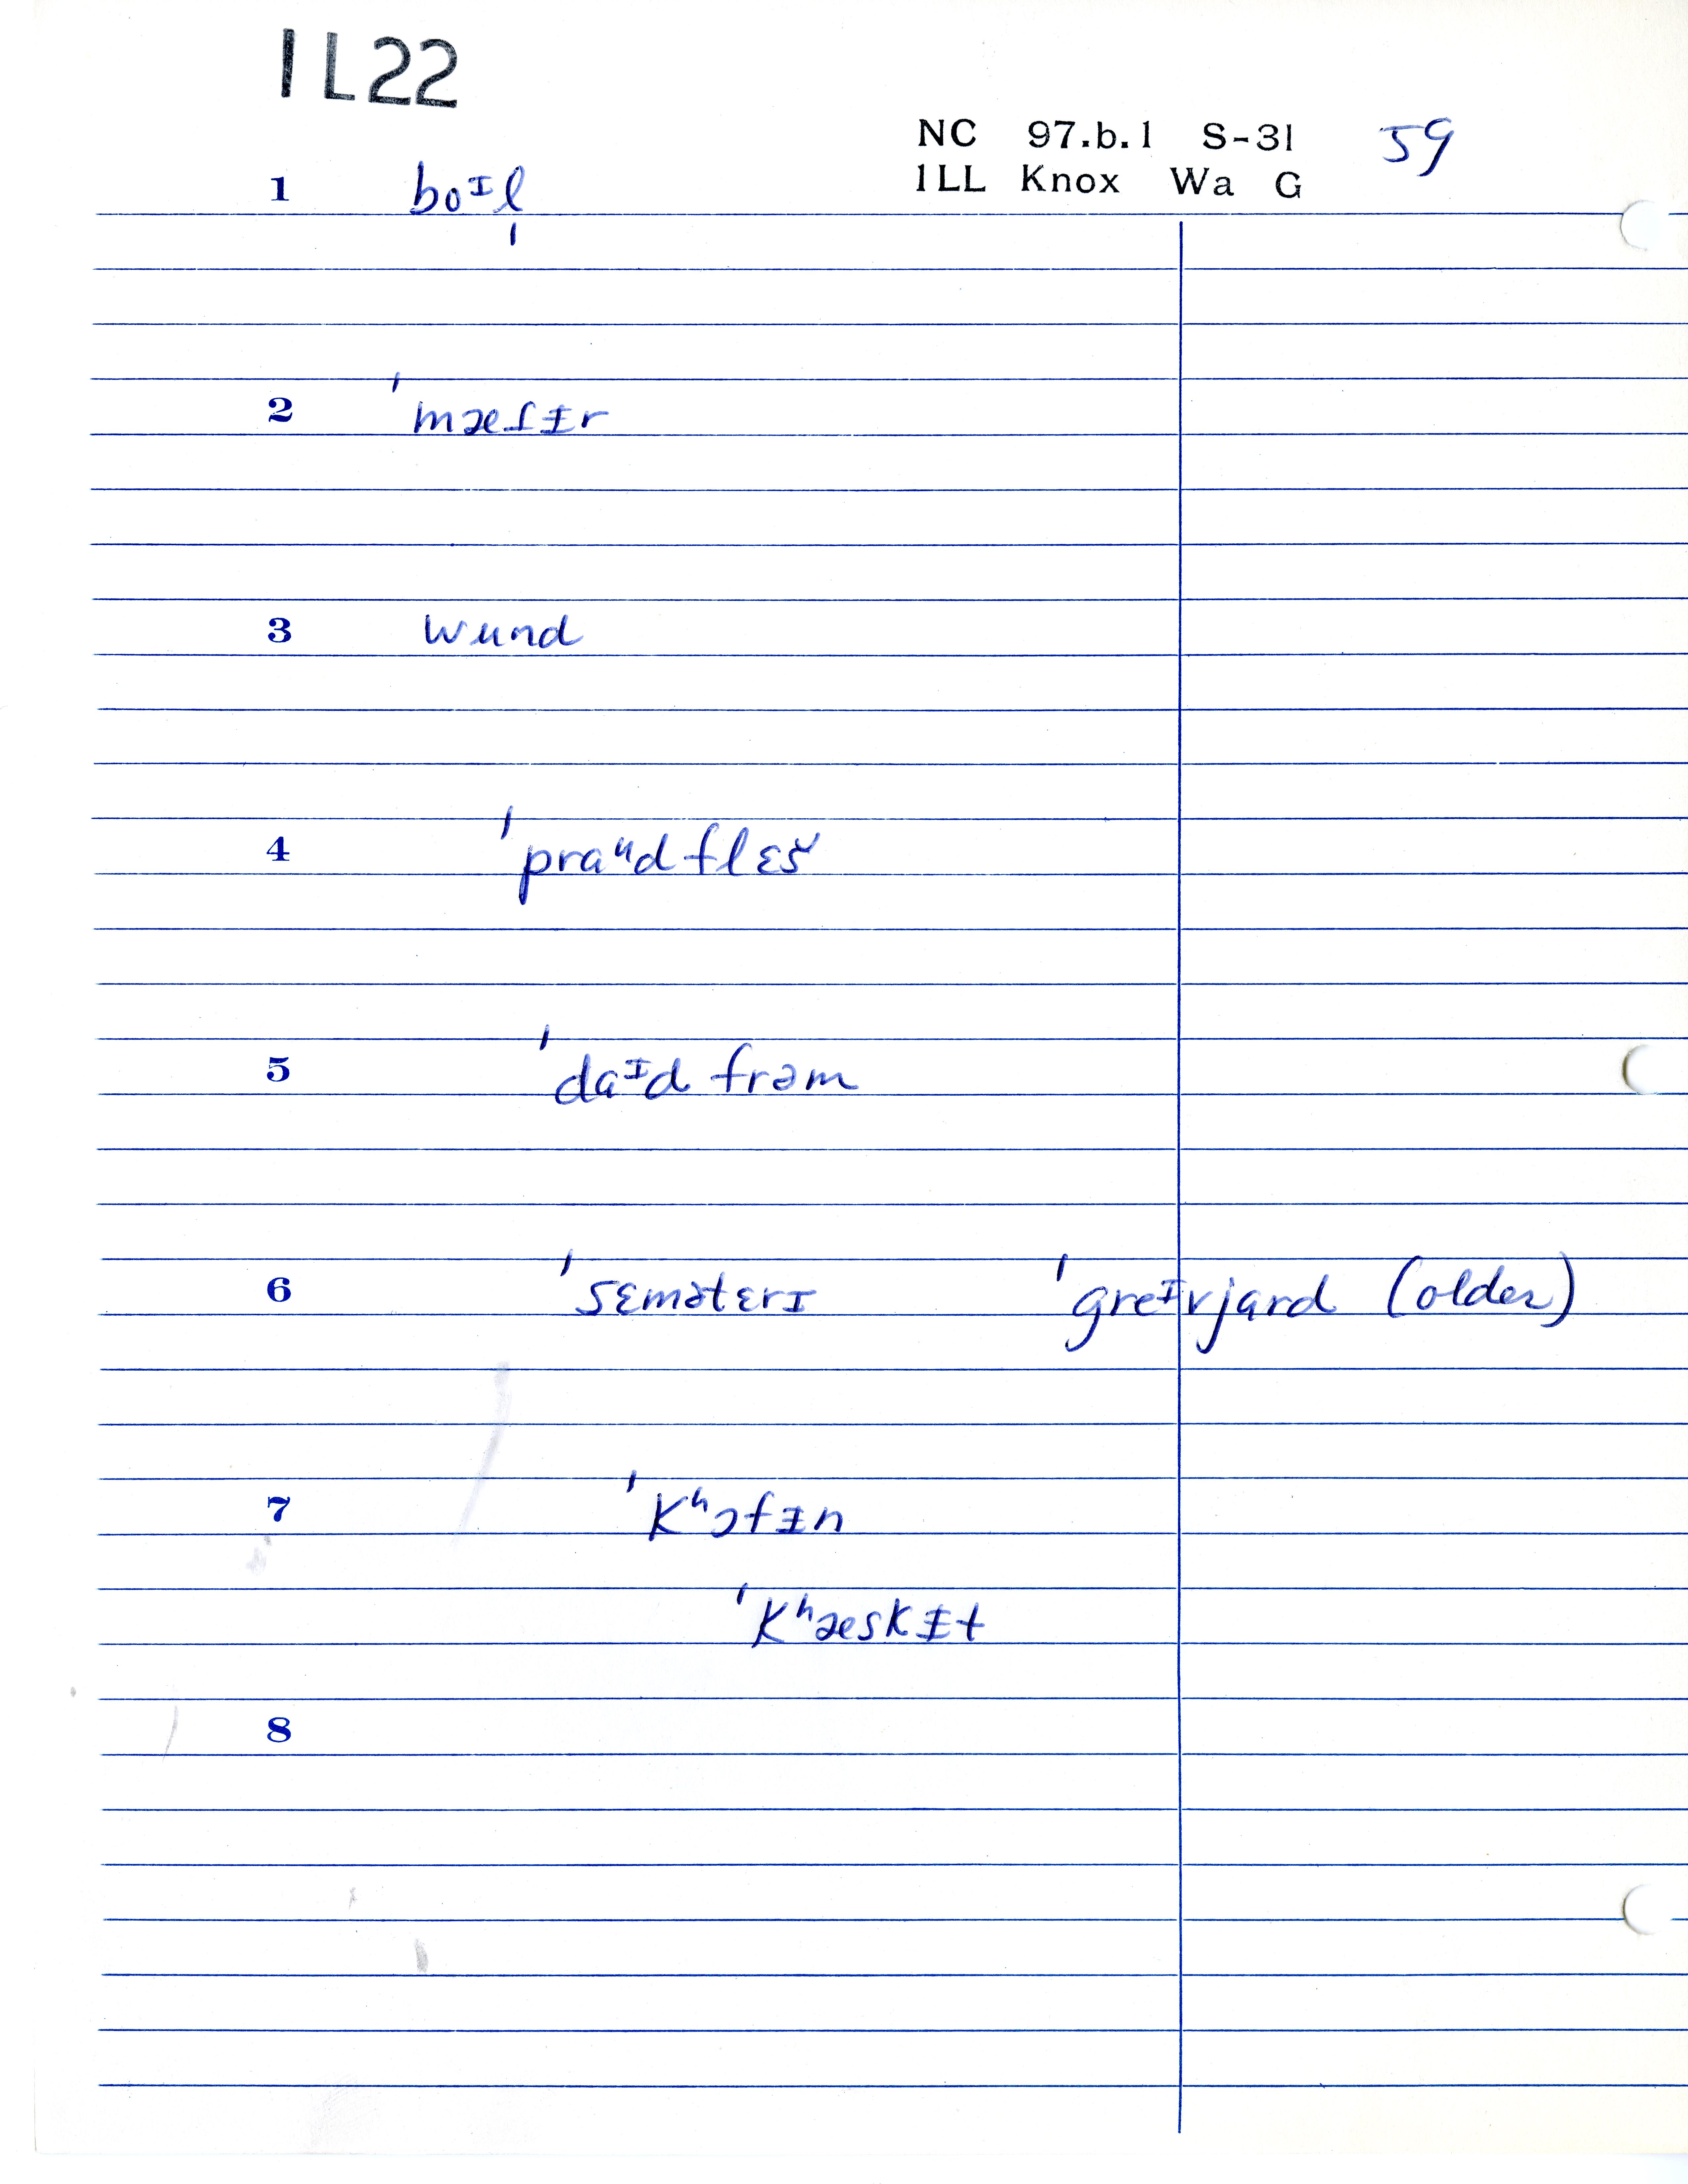 1L22
NC 97.b.1 S-31 59
1LL Knox Wa G
1 boᶦl̩
2 ˈmætᵻr
3 wund
4 ˈpraᵘd flɛš
5 ˈdaᶦd frəm
6 ˈsɛmətɛrɪ ˈgreᶦvjɑrd (older)
7 ˈKʰɔfᵻn
ˈKʰæskᵻt
8